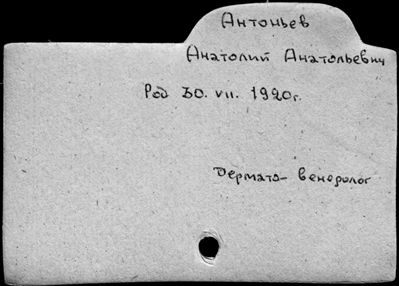 Антоньев
Анатолий Анатольевич
Род 30. VII. 1920г.
Дермато-венеролог